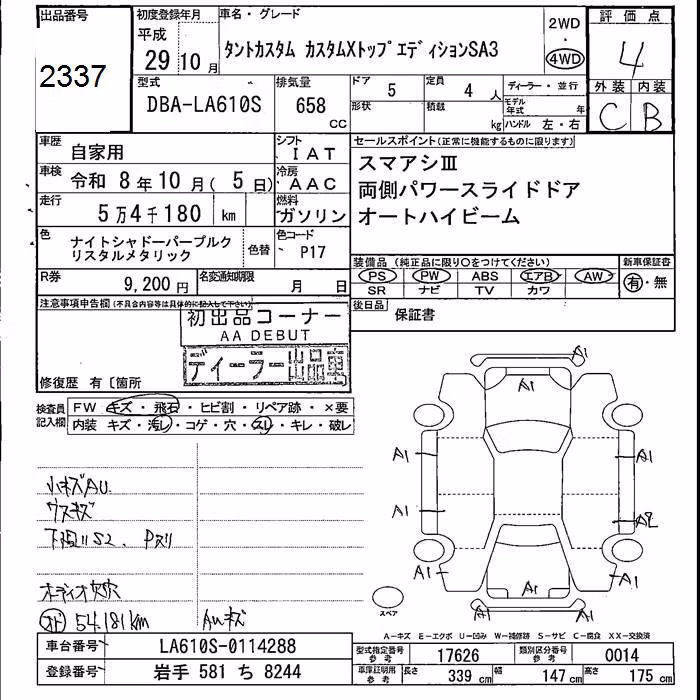 出品番号
2337
初度登録年月
平成
29 10 月
車名・グレード
タントカスタム カスタムXトップエディションSA3
2WD
・
4WD
評価点
4
外装 内装
C B
型式
DBA-LA610S
排気量
658
CC
ドア
5
定員
4 人
形状
積載
kg
ディーラー・並行
モデル年式 年
ハンドル 左・右
車歴
自家用
シフト
IAT
車検
令和 8年10月( 5日)
冷房
AAC
走行
5万4千180 km
燃料
ガソリン
色
ナイトシャドーパープルク
リスタルメタリック
色替
色コード
P17
R券
9,200円
名変通知期限
月 日
セールスポイント(正常に機能するものに限ります)
スマアシⅢ
両側パワースライドドア
オートハイビーム
装備品(純正品に限り○をつけてください)
PS PW ABS エアB AW
SR ナビ TV カワ
新車保証書
有・無
後日品
保証書
注意事項申告欄(不具合内容等は具体的に記入して下さい)
初出品コーナー
AA DEBUT
ディーラー出品車
修復歴 有〔箇所
検査員
記入欄
FW キズ・飛石・ヒビ割・リペア跡・×要
内装 キズ・汚レ・コゲ・穴・スレ・キレ・破レ
小キズAU.
ウスキズ
下廻りS2、Pスリ
オーディオ欠穴
54.181km
AUキズ
A1
A1
A1
A1
A1
A2
A1
A1
A1
A1
スペア
A-キズ E-エクボ U-凹み W-補修跡 S-サビ C-腐食 XX-交換済
車台番号
LA610S-0114288
登録番号
岩手 581 ち 8244
型式指定番号
参考
17626
類別区分番号
参考
0014
車庫証明用
参考
長さ
339 cm
幅
147 cm
高さ
175 cm